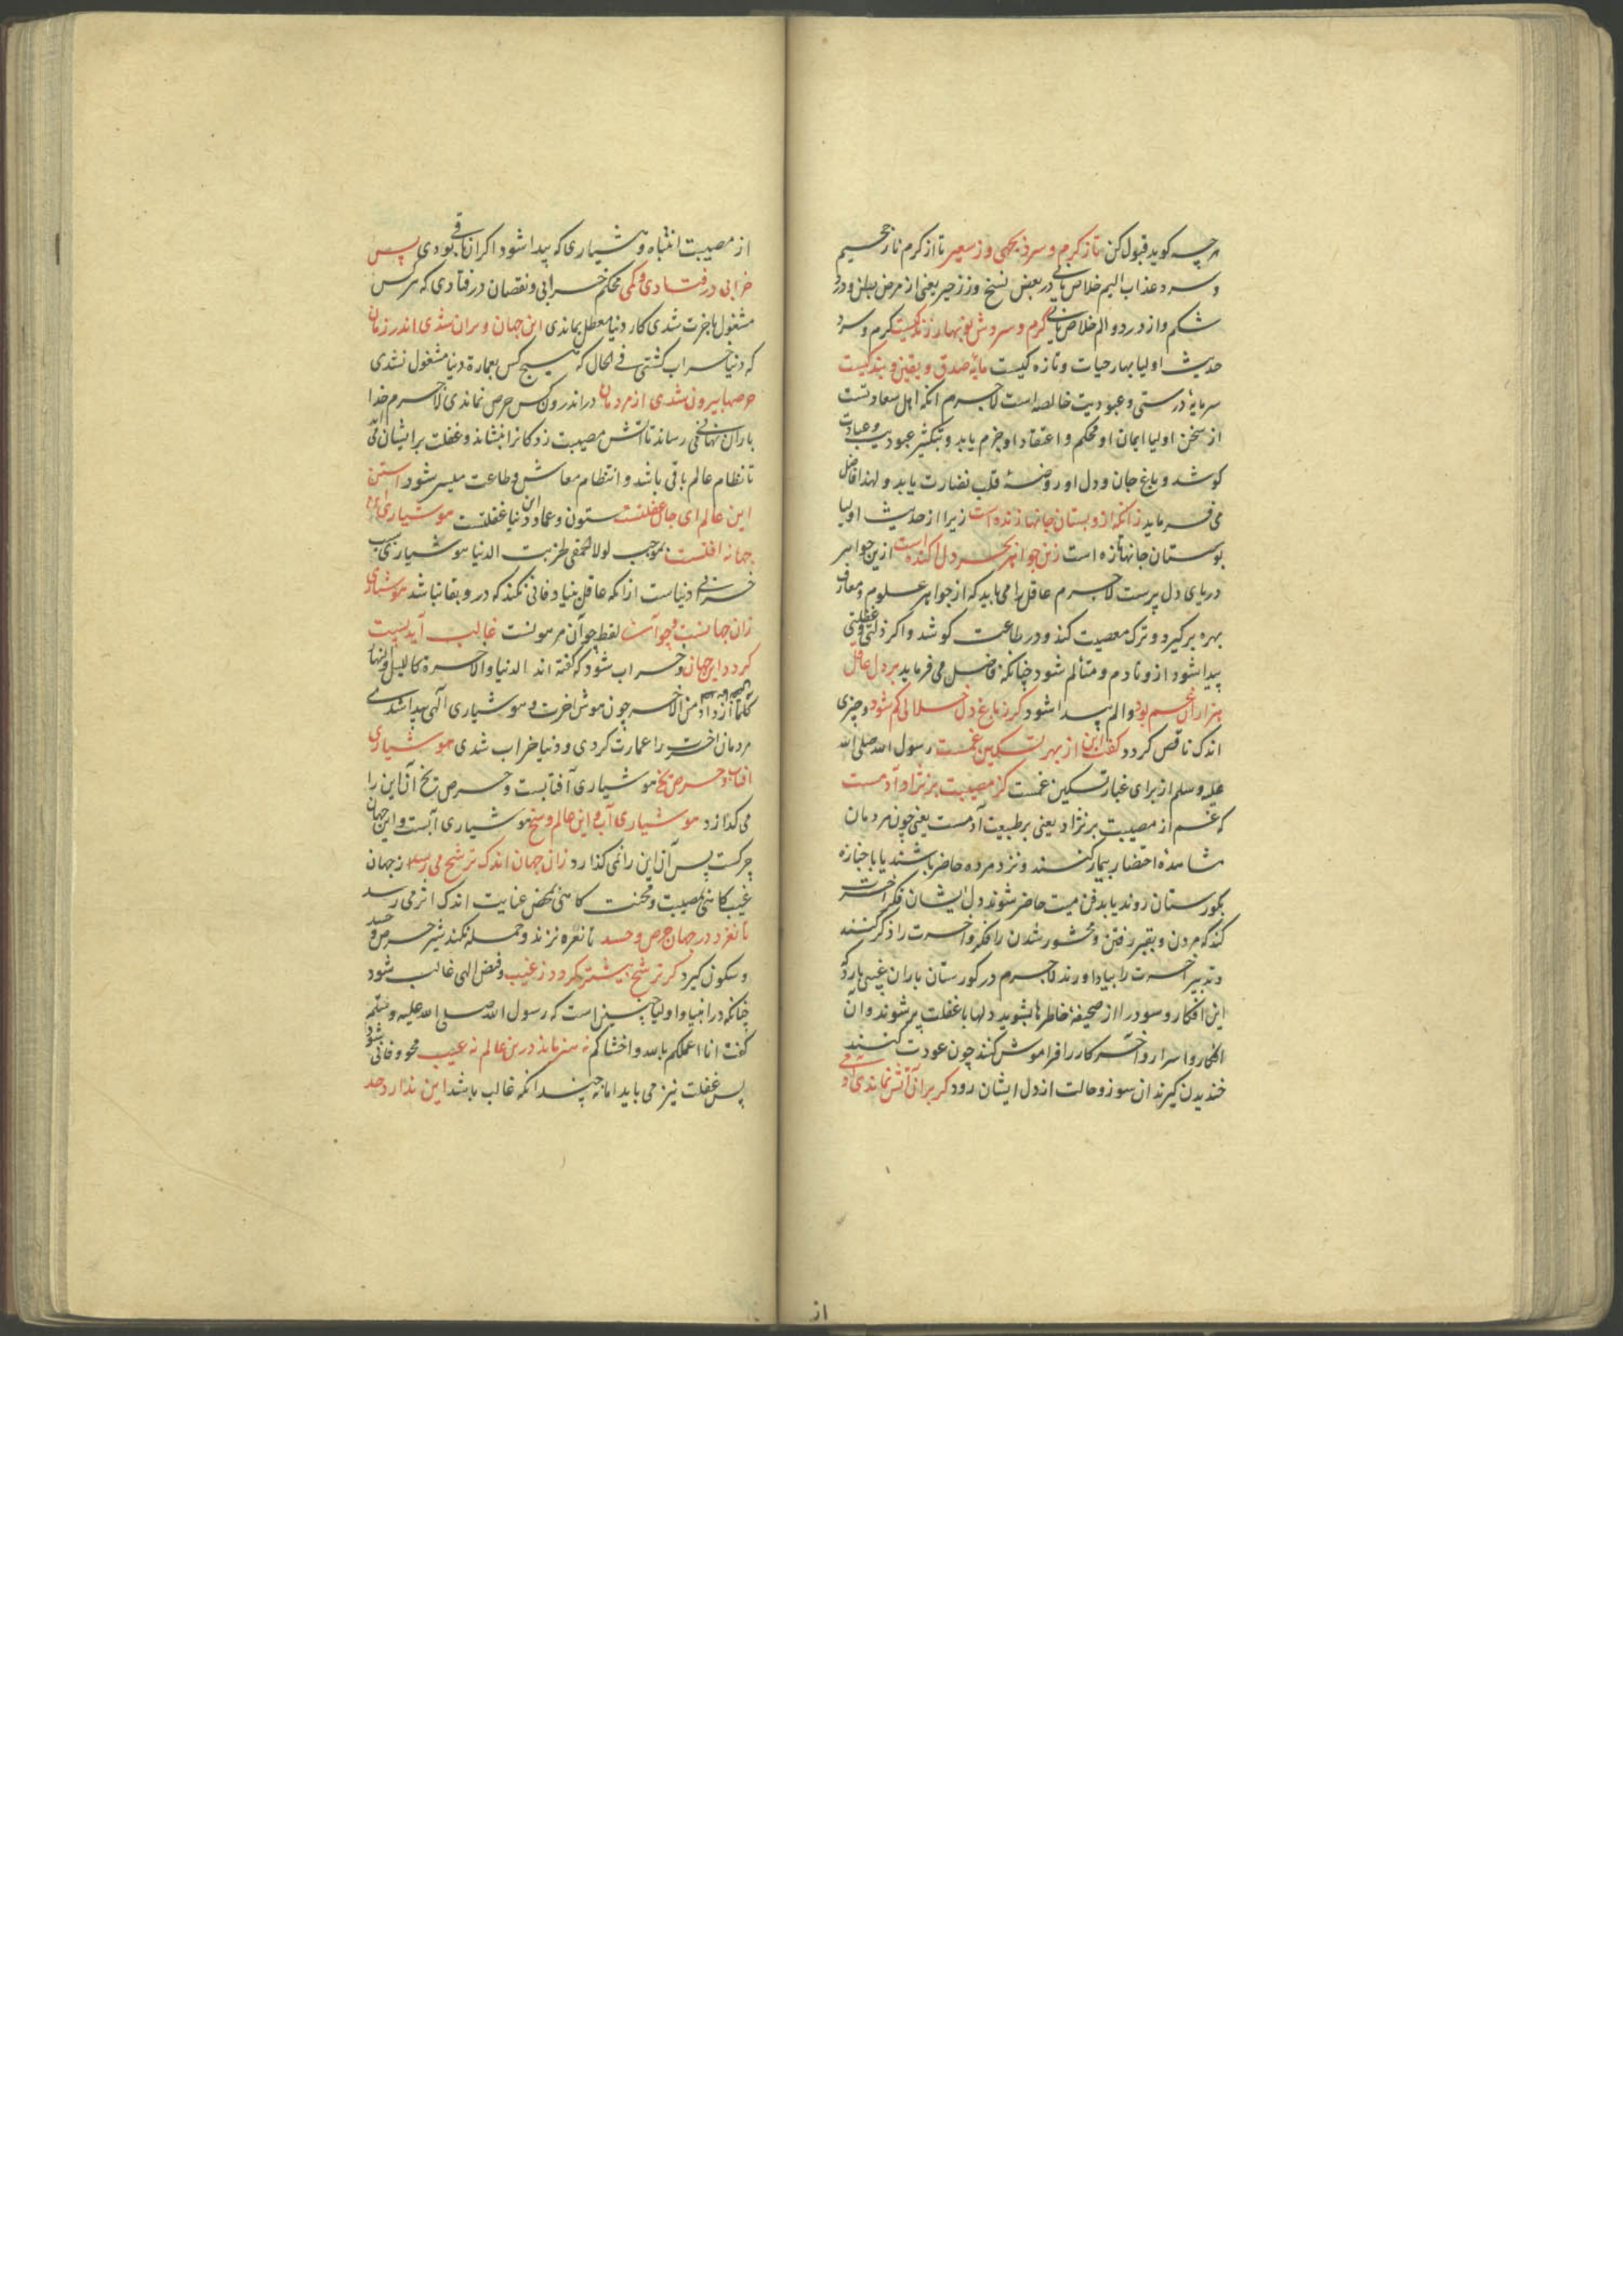 هرچه کوید قبول کن تاز کرم و سرد بجهی وز سعیر تا از کرم نار جحیم
و سرد عذاب الیم خلاص یابی در بعض نسخ وز زحیر یعنی از مرض بطن و درد
شکم و از درد و الم خلاص یابی گرم و سردش نوبهار زندکیست کرم و سرد
حدیث اولیا بهار حیات و تازه کیست مایهٔ صدق و یقین و بندکیست
سرمایهٔ درستی و عبودیت خالصه است لاجرم انکه اهل سعادتست
از سخن اولیا ایمان او محکم و اعتقاد او جزم یابد و بتکثیر عبودیت و عبادت
کوشد و باغ جان و دل او و روضهٔ قلب نضارت یابد و لهذا فاضل
می فرماید زانکه ازو بستان جانها زنده است زیرا از حدیث اولیا
بوستان جانها تازه است زین جواهر بحر دل اکنده است ازین جواهر
دریای دل پرست لاجرم عاقل را می باید که از جواهر علوم و معارف
بهره برکیرد و ترک معصیت کند و در طاعت کوشد و اکر ذلتی و غفلتی
پیدا شود ازو نادم و متألم شود چنانکه فاضل می فرماید بر دل عاقل
هزاران غم بود و الم پیدا شود کر ز باغ دل خلالی کم شود و چیزی
اندک ناقص کردد کفت این از بهر تسکین غمست رسول الله صلی الله
علیه و سلم از برای غبار تسکین غمست کز مصیبت بر نژاد آدمست
که غم از مصیبت بر نژاد یعنی بر طبیعت آدمست یعنی چون مردمان
مشاهدهٔ احتضار بیمار کنند و نزد مرده حاضر باشند یا با جنازه
بکورستان روند یا بدفن میت حاضر شوند دل ایشان فکر اخرت
کند که مردن و بقبر رفتن و محشور شدن را فکر و اخرت را ذکر کنند
و تدبیر اخرت را بیاد اورند لاجرم در کورستان باران غیبی بارد که
این افکار و سودرا از صحیفهٔ خاطرها بشوید دلها با غفلت پر شوند و آن
افکار و اسرار و آخر کار را فراموش کنند چون عودت کنند
خندیدن کیرند ان سوز و حالت از دل ایشان رود کر بران آتش بماندی آدمی
از
از مصیبت انتباه و هشیاری که پیدا شود اکر ان باقی بودی پس
خرابی درفتادی و کمی محکم خرابی و نقصان درفتادی که هرکس
مشغول باخرت شدی کار دنیا معطل بماندی این جهان ویران شدی اندر زمان
که دنیا خراب کشتی فی الحال که هیچ کس بعمارة دنیا مشغول نشدی
حرصها بیرون شدی از مردمان در اندرون کس حرص نماندی لاجرم خدا
باران نهانی می رساند تا آتش مصیبت زدکانرا بنشاند و غفلت بر ایشان
تا نظام عالم باقی باشد و انتظام معاش و طاعت میسر شود استن
این عالم ای جان غفلتست ستون و عماد این دنیا غفلتست هوشیاری این
جهانرا آفتست بموجب لولا الحمقی لخربت الدنیا هوشیاری سبب
خرابی دنیاست ازانکه عاقل بنیاد فانی نکند که درو بقا نباشد هوشیاری
زان جهانست و چو آن لفظ چو آن مرهونست غالب آید پست
کردد این جهان و خراب شود که کفته اند الدنیا والاخرة کاللیل والنهار
کلما ازداد من الاخر چون هوش اخرت و هوشیاری آلهی پیدا شدی
مردمان اخرت را عمارت کردی و دنیا خراب شدی هوشیاری
افتاب و حرص یخ هوشیاری آفتابست و حرص یخ آن این را
می کدازد هوشیاری آب و این عالم وسخ هوشیاری آبست و این جهان
چرکست پس آن این را نمی کذارد زان جهان اندک ترشح می رسد از جهان
غیب کاهی بمصیبت و محنت کاهی بمحض عنایت اندک اثر می رسد
تا نغرد در جهان حرص و حسد تا نعره نزند و حمله نکند شیر حرص و حسد
و سکون کیرد کر ترشح بیشتر کردد ز غیب و فیض الهی غالب شود
چنانکه در انبیا و اولیا چنین است که رسول الله صلی الله علیه و سلم
کفت انا اعلمکم بالله و اخشاکم نه هنر ماند درین عالم نه عیب محو و فانی شود
پس غفلت نیز می باید اما نه چندانکه غالب باشد این ندارد حد